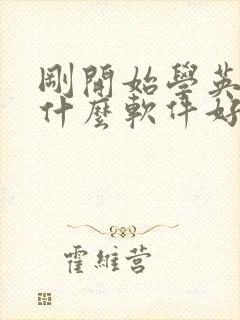 剛開始學英
什麼軟件好
霍維营